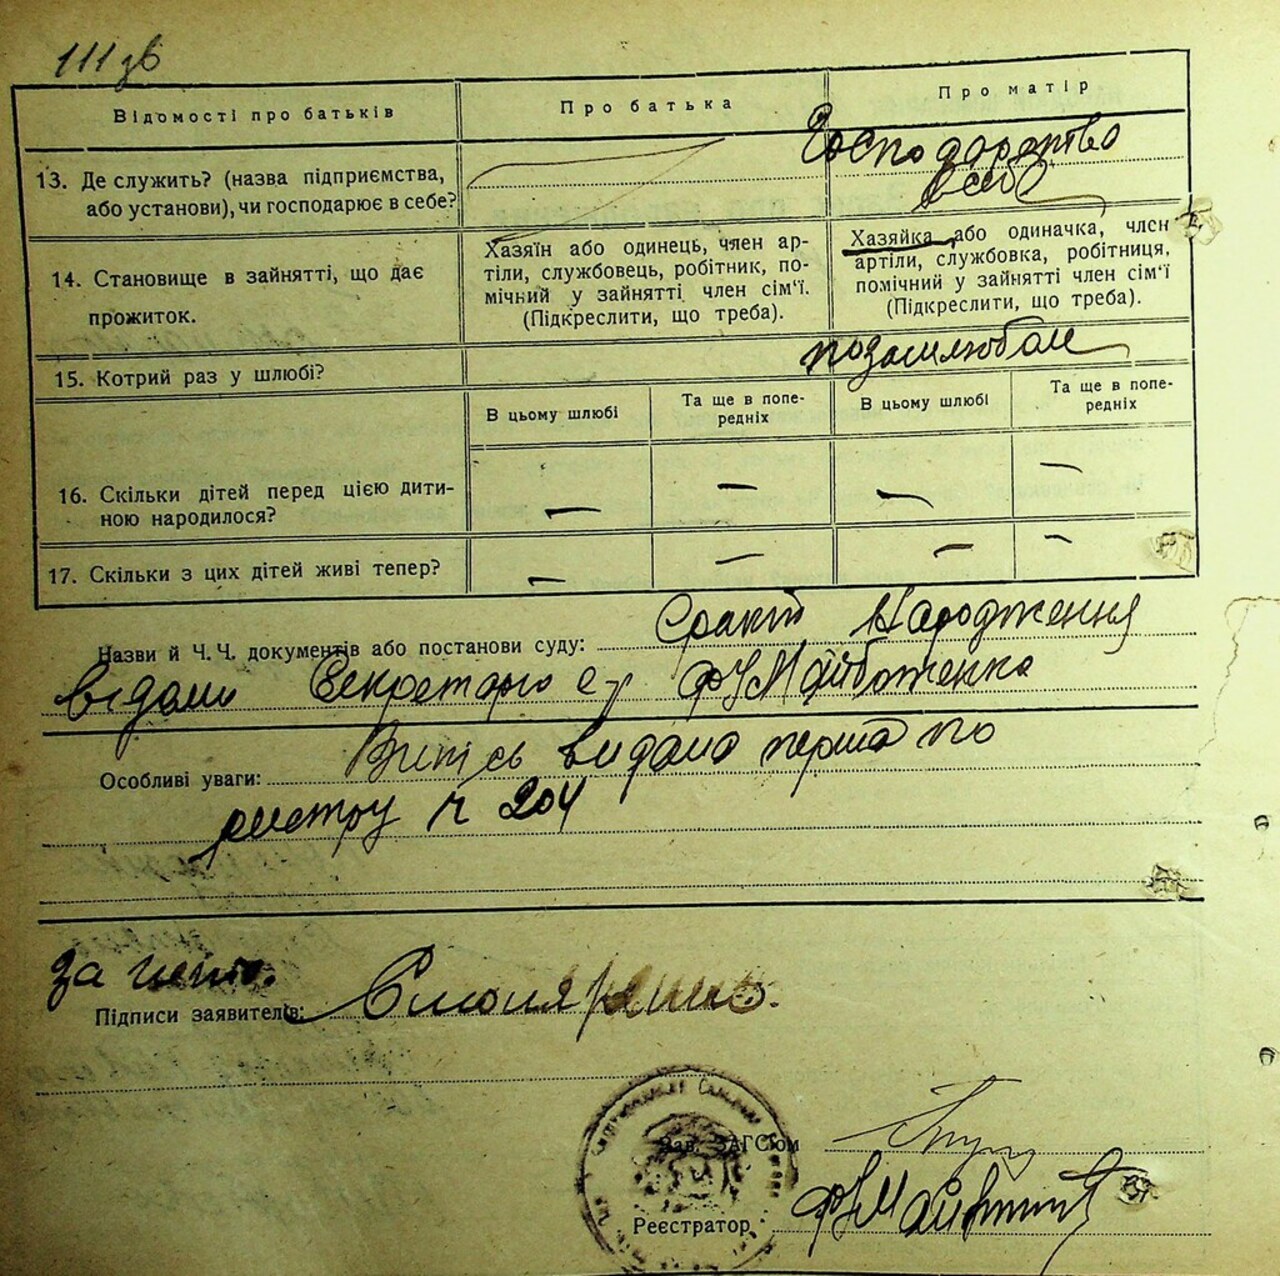 111 зв
Відомості про батьків
Про батька
Про матір
13. Де служить? (назва підприємства,
або установи), чи господарює в себе?
Господарство
в себе
14. Становище в зайнятті, що дає
прожиток.
Хазяїн або одинець, член ар-
тіли, службовець, робітник, по-
мічний у зайнятті член сім'ї.
(Підкреслити, що треба).
Хазяйка або одиначка, член
артіли, службовка, робітниця,
помічний у зайнятті член сім'ї
(Підкреслити, що треба).
15. Котрий раз у шлюбі?
позашлюбом
В цьому шлюбі
Та ще в попе-
редніх
В цьому шлюбі
Та ще в попе-
редніх
16. Скільки дітей перед цією дити-
ною народилося?
— — — —
17. Скільки з цих дітей живі тепер?
— — — —
Назви й Ч. Ч. документів або постанови суду: Народження
видами Секретарю с-р
Особливі уваги: Витсь видана перша по
реєстру ч 204
за
Підписи заявителів:
Зав. ЗАГС'ом
Реєстратор